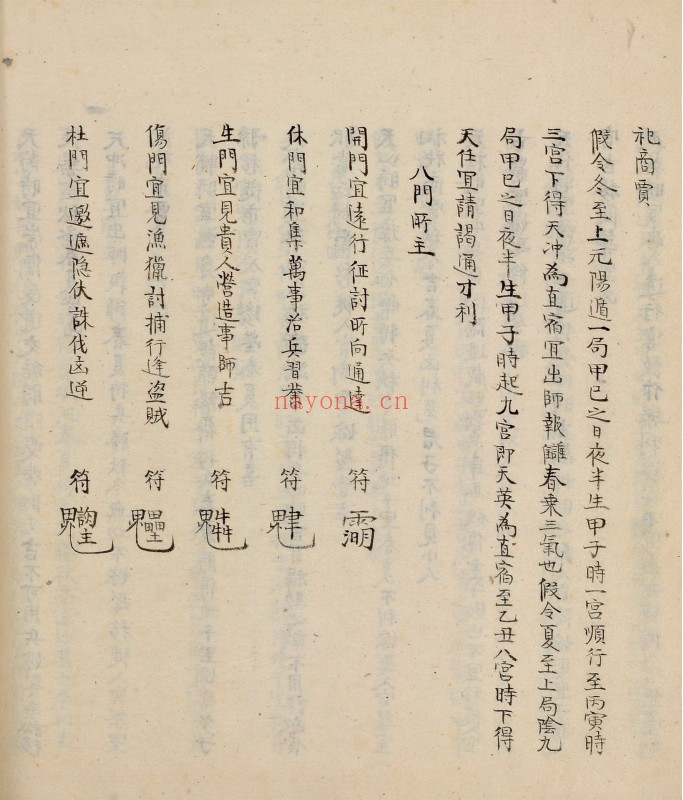 祀商賈
假令冬至上元陽遁一局甲已之日夜半生甲子時一宮順行至丙寅時
三宮下得天冲為直宿冝出師報讎春乗三氣也假令夏至上局陰九
局甲已之日夜半生甲子時起九宮即天英為直宿至乙丑八宮時下得
天任冝請謁通才利
八門所主
開門宜遠行征討所向通達 符
休門宜和集萬事治兵習業 符
生門宜見貴人營造事師吉 符
傷門宜見漁獵討捕行逢盗賊 符
杜門宜邀遮隐伏誅伐凶逆 符
nayona.cn